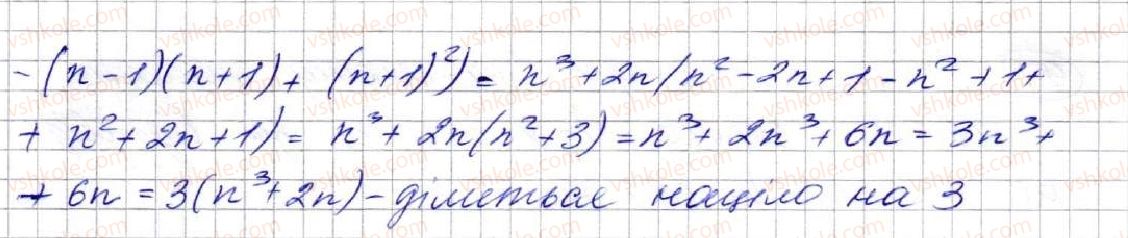 - (n-1)(n+1) + (n+1)²) = n³ + 2n(n² - 2n + 1 - n² + 1 +
+ n² + 2n + 1) = n³ + 2n(n² + 3) = n³ + 2n³ + 6n = 3n³ +
+ 6n = 3(n³ + 2n) - ділиться націло на 3